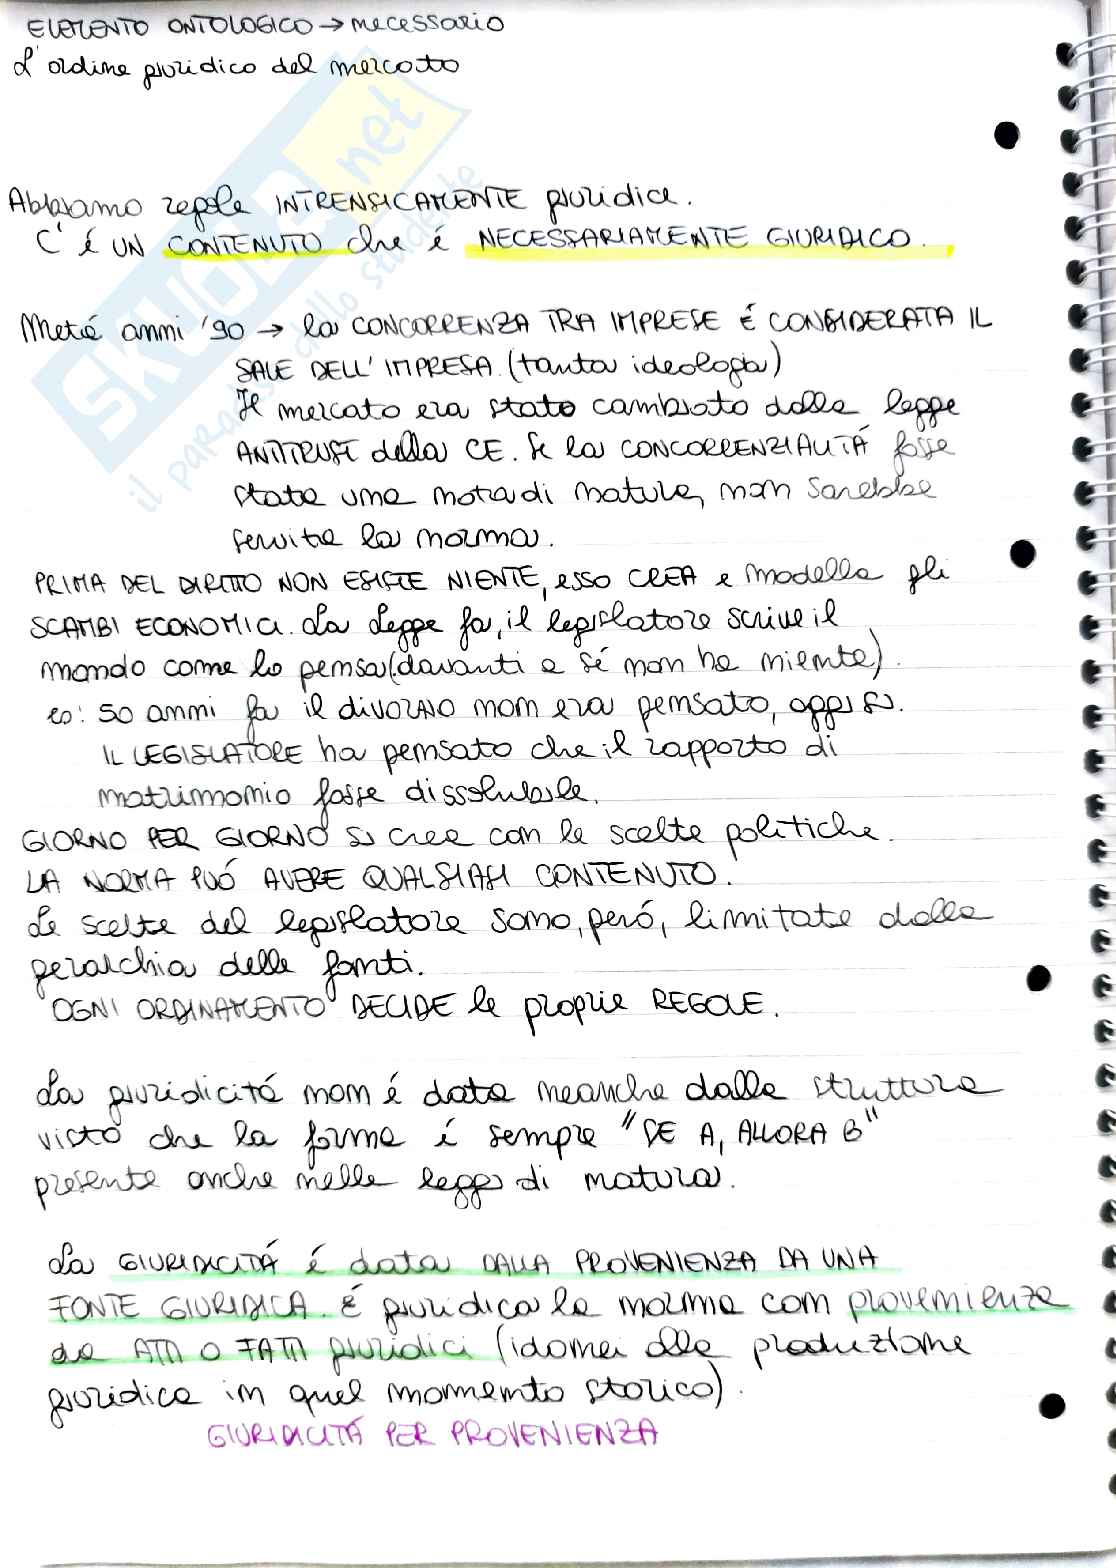 ELEMENTO ONTOLOGICO → necessario
L'ordine giuridico del mercato
Abbiamo regole INTRENSICAMENTE giuridice.
C'é UN CONTENUTO che é NECESSARIAMENTE GIURIDICO.
Metá anni '90 → la CONCORRENZA TRA IMPRESE É CONSIDERATA IL
SALE DELL'IMPRESA. (tanta ideologia)
Il mercato era stato cambiato dalla legge
ANTITRUST della CE. Se la CONCORRENZIALITÁ fosse
stata una nota di natura, non sarebbe
servita la norma.
PRIMA DEL DIRITTO NON ESISTE NIENTE, esso CREA e modella gli
SCAMBI ECONOMICI. La Legge fa, il legislatore scrive il
mondo come lo pensa (davanti a sé non ha niente).
es: 50 anni fa il divorzio non era pensato, oggi si.
IL LEGISLATORE ha pensato che il rapporto di
matrimonio fosse dissolubile.
GIORNO PER GIORNO si crea con le scelte politiche.
LA NORMA PUÓ AVERE QUALSIASI CONTENUTO.
Le scelte del legislatore sono, peró, limitate dalla
gerarchia delle fonti.
OGNI ORDINAMENTO DECIDE le proprie REGOLE.
La giuridicitá non é data neanche dalla struttura
visto che la forma é sempre "SE A, ALLORA B"
presente anche nelle leggi di natura.
La GIURIDICITÁ é data DALLA PROVENIENZA DA UNA
FONTE GIURIDICA. É giuridica la norma con provenienza
da ATTI O FATTI giuridici (idonei alla produzione
giuridica in quel momento storico).
GIURIDICITÁ PER PROVENIENZA
SKUOLA.net
il paradiso dello studente